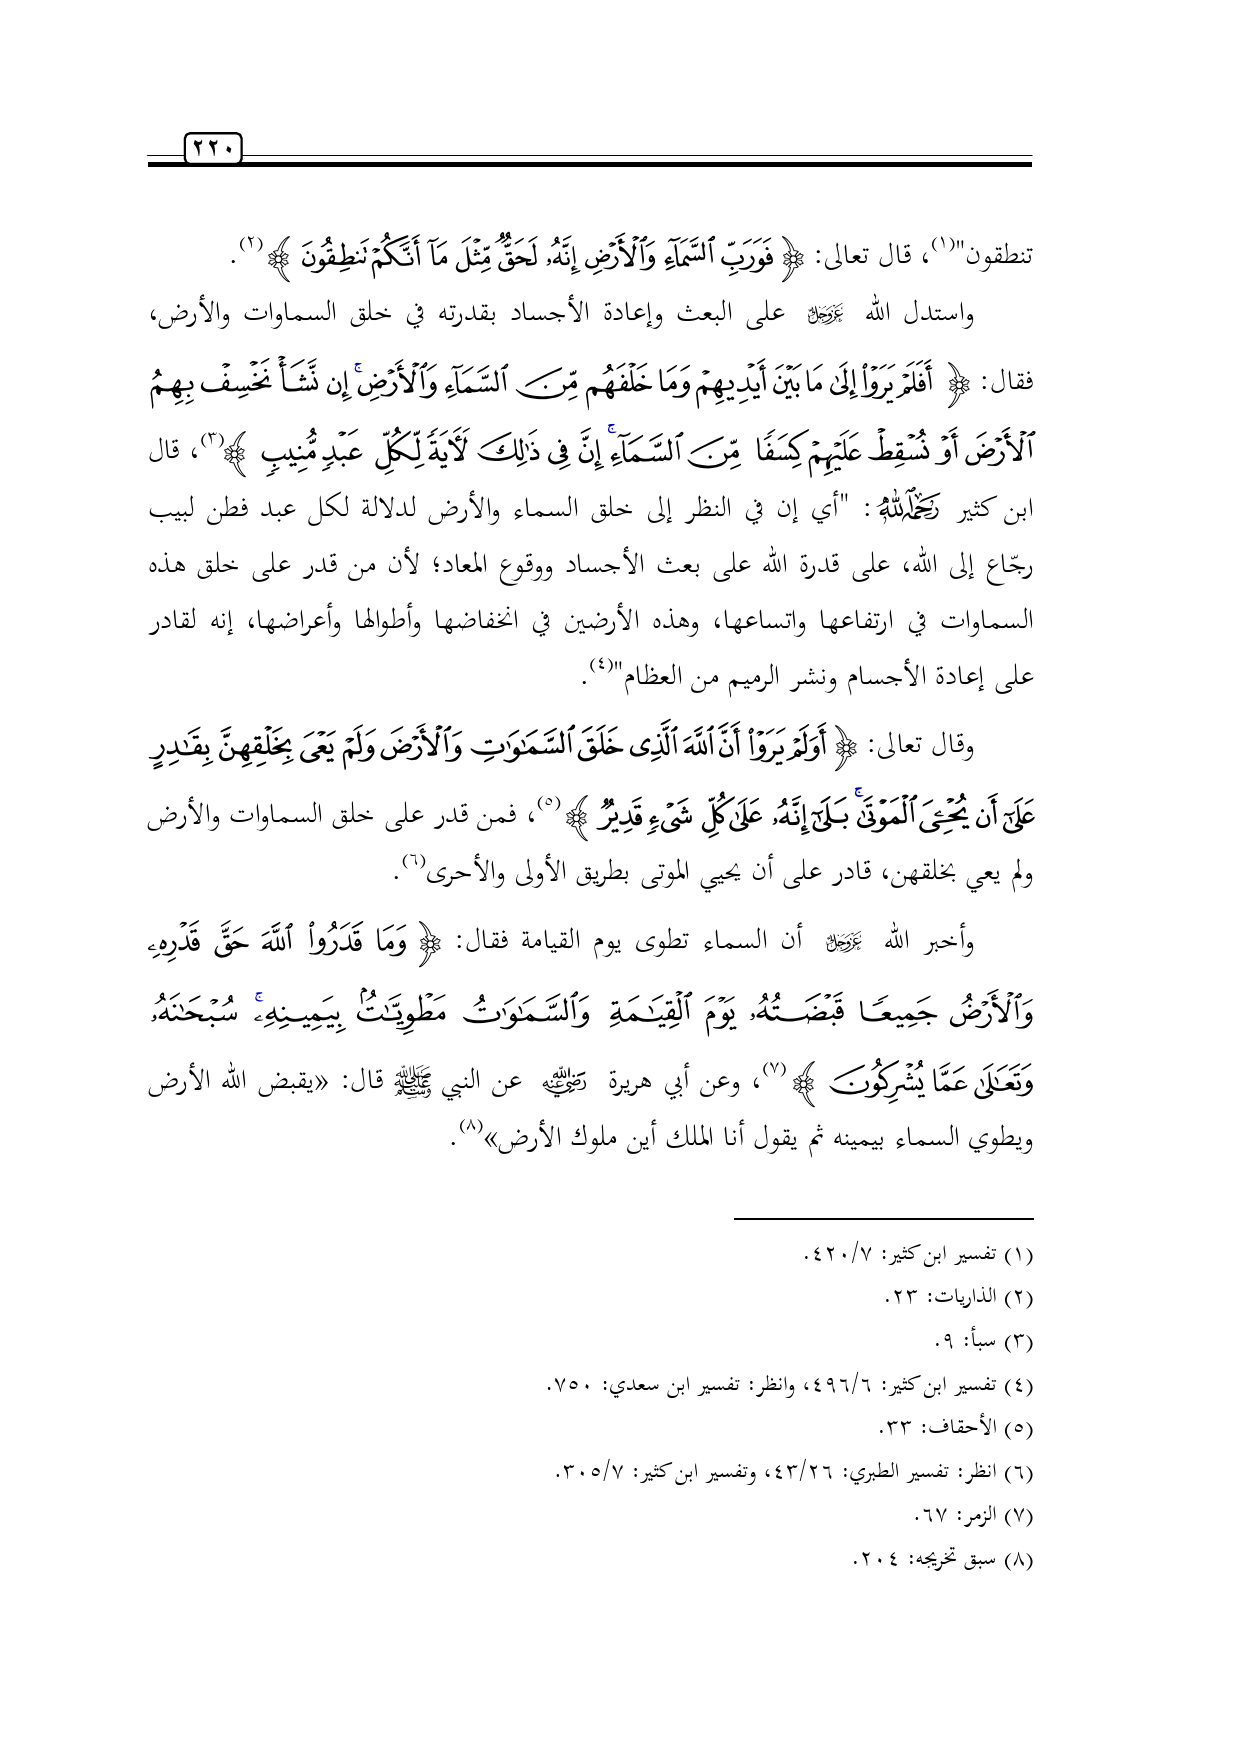 ٢٢٠
تنطقون"(١)، قال تعالى: ﴿ فَوَرَبِّ ٱلسَّمَآءِ وَٱلْأَرْضِ إِنَّهُۥ لَحَقٌّ مِّثْلَ مَآ أَنَّكُمْ تَنطِقُونَ ﴾(٢).
واستدل الله ﷿ على البعث وإعادة الأجساد بقدرته في خلق السماوات والأرض،
فقال: ﴿ أَفَلَمْ يَرَوْا۟ إِلَىٰ مَا بَيْنَ أَيْدِيهِمْ وَمَا خَلْفَهُم مِّنَ ٱلسَّمَآءِ وَٱلْأَرْضِ ۚ إِن نَّشَأْ نَخْسِفْ بِهِمُ
ٱلْأَرْضَ أَوْ نُسْقِطْ عَلَيْهِمْ كِسَفًا مِّنَ ٱلسَّمَآءِ ۚ إِنَّ فِى ذَٰلِكَ لَـَٔايَةً لِّكُلِّ عَبْدٍ مُّنِيبٍ ﴾(٣)، قال
ابن كثير رَحِمَهُ ٱللَّهُ: "أي إن في النظر إلى خلق السماء والأرض لدلالة لكل عبد فطن لبيب
رجّاع إلى الله، على قدرة الله على بعث الأجساد ووقوع المعاد؛ لأن من قدر على خلق هذه
السماوات في ارتفاعها واتساعها، وهذه الأرضين في انخفاضها وأطوالها وأعراضها، إنه لقادر
على إعادة الأجسام ونشر الرميم من العظام"(٤).
وقال تعالى: ﴿ أَوَلَمْ يَرَوْا۟ أَنَّ ٱللَّهَ ٱلَّذِى خَلَقَ ٱلسَّمَٰوَٰتِ وَٱلْأَرْضَ وَلَمْ يَعْىَ بِخَلْقِهِنَّ بِقَٰدِرٍ
عَلَىٰٓ أَن يُحْـِۧىَ ٱلْمَوْتَىٰ ۚ بَلَىٰٓ إِنَّهُۥ عَلَىٰ كُلِّ شَىْءٍ قَدِيرٌ ﴾(٥)، فمن قدر على خلق السماوات والأرض
ولم يعي بخلقهن، قادر على أن يحيي الموتى بطريق الأولى والأحرى(٦).
وأخبر الله ﷿ أن السماء تطوى يوم القيامة فقال: ﴿ وَمَا قَدَرُوا۟ ٱللَّهَ حَقَّ قَدْرِهِۦ
وَٱلْأَرْضُ جَمِيعًا قَبْضَتُهُۥ يَوْمَ ٱلْقِيَٰمَةِ وَٱلسَّمَٰوَٰتُ مَطْوِيَّٰتٌۢ بِيَمِينِهِۦ ۚ سُبْحَٰنَهُۥ
وَتَعَٰلَىٰ عَمَّا يُشْرِكُونَ ﴾(٧)، وعن أبي هريرة رَضِيَ ٱللَّهُ عَنْهُ عن النبي ﷺ قال: «يقبض الله الأرض
ويطوي السماء بيمينه ثم يقول أنا الملك أين ملوك الأرض»(٨).
(١) تفسير ابن كثير: ٤٢٠/٧.
(٢) الذاريات: ٢٣.
(٣) سبأ: ٩.
(٤) تفسير ابن كثير: ٤٩٦/٦، وانظر: تفسير ابن سعدي: ٧٥٠.
(٥) الأحقاف: ٣٣.
(٦) انظر: تفسير الطبري: ٤٣/٢٦، وتفسير ابن كثير: ٣٠٥/٧.
(٧) الزمر: ٦٧.
(٨) سبق تخريجه: ٢٠٤.